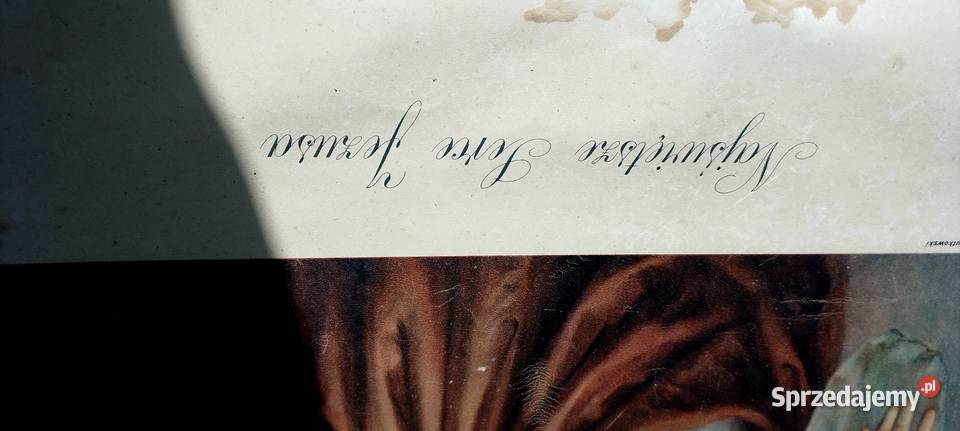 Najświętsze Serce Jezusa
Sprzedajemy.pl